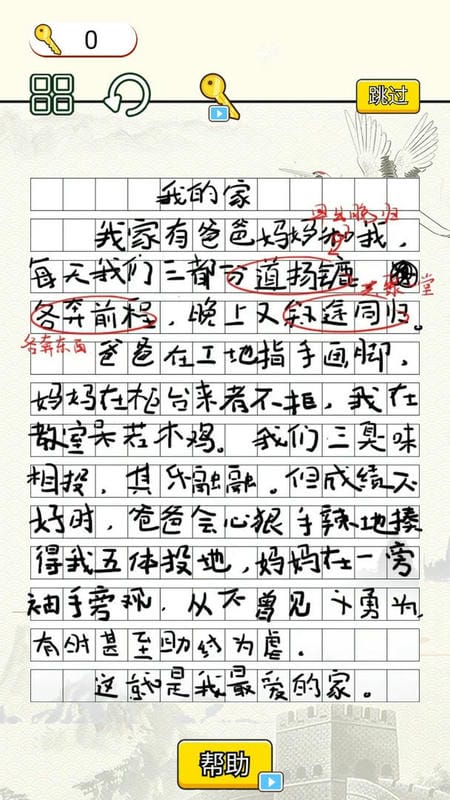 0
跳过
我的家
早出晚归
我家有爸爸妈妈和我，
每天我们三都分道扬镳
聚 堂
各奔前程，晚上又殊途同归。
各奔东西
爸爸在工地指手画脚，
妈妈在柜台来者不拒，我在
教室呆若木鸡。我们三臭味
相投，其乐融融。但成绩不
好时，爸爸会心狠手辣地揍
得我五体投地，妈妈在一旁
袖手旁观，从不曾见义勇为，
有时甚至助纣为虐。
这就是我最爱的家。
帮助